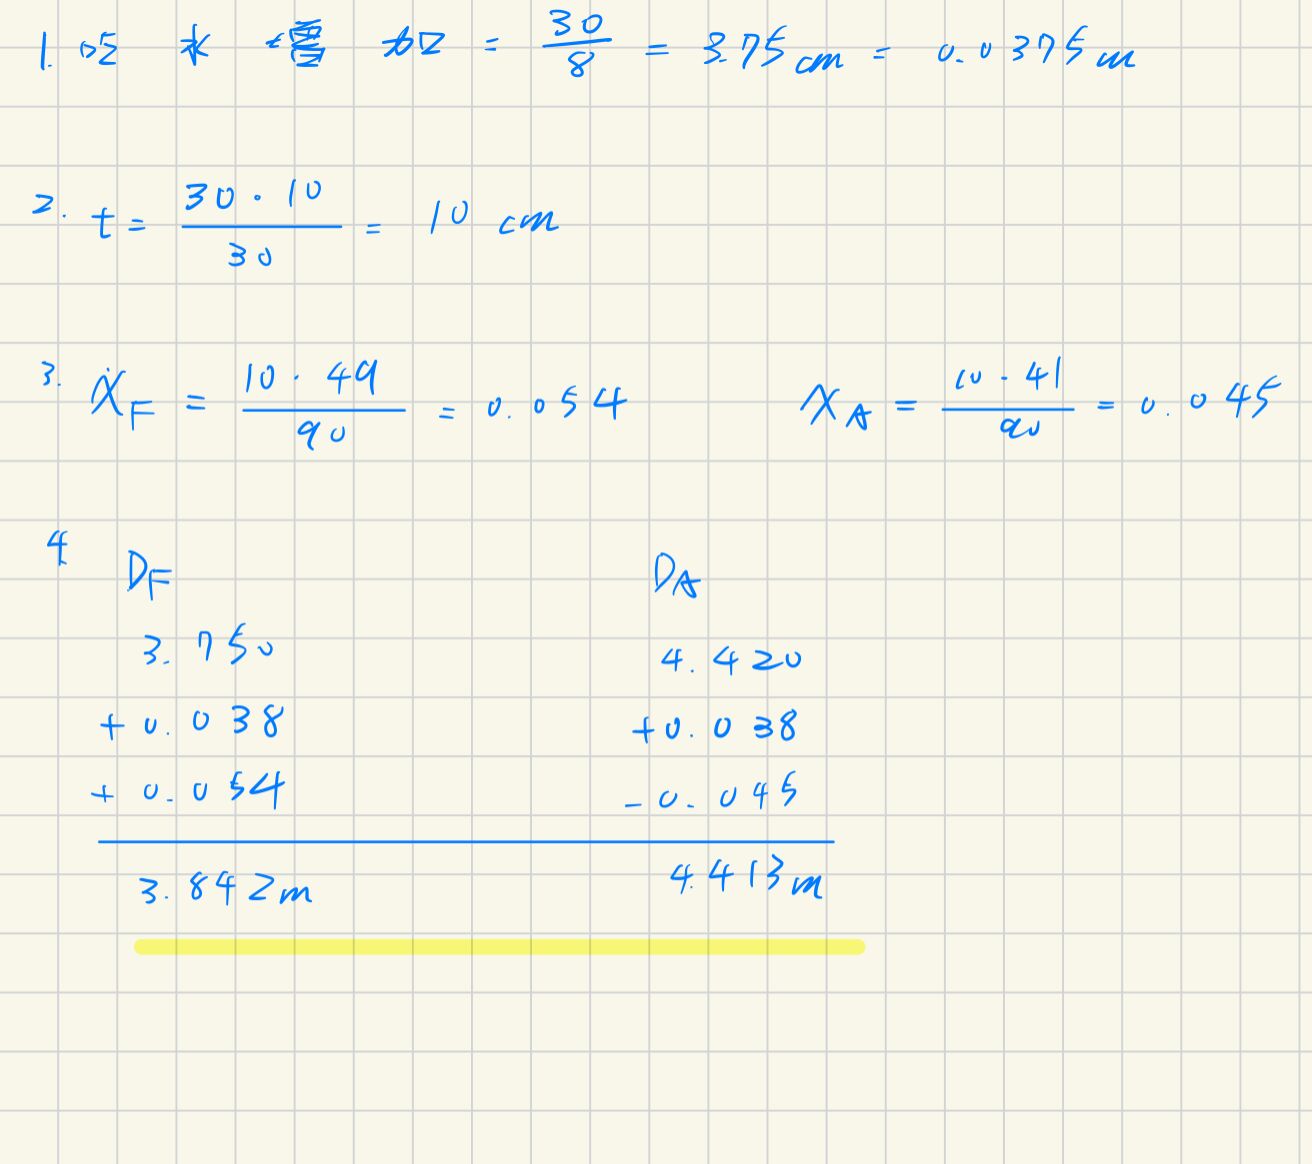 1. 吃 水 增 加 = 30/8 = 3.75 cm = 0.0375 m
2. t = 30・10/30 = 10 cm
3. XF = 10・49/90 = 0.054 XA = 10・41/90 = 0.045
4. DF DA
3.750 4.420
+ 0.038 + 0.038
+ 0.054 - 0.045
3.842 m 4.413 m